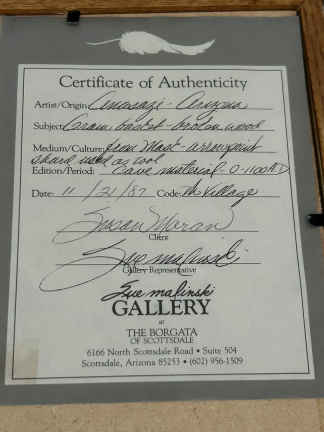 Certificate of Authenticity
Artist/Origin: Anasazi - Arizona
Subject: Grain basket - broken wood
Medium/Culture: from Mat arrowpoint
shard used as tool
Edition/Period: Cave material - 0-1100 A.D
Date: 11/21/87 Code: The Village
Susan Moran
Client
Sue Malinski
Gallery Representative
Sue Malinski
GALLERY
at
THE BORGATA
OF SCOTTSDALE
6166 North Scottsdale Road • Suite 504
Scottsdale, Arizona 85253 • (602) 956-1509